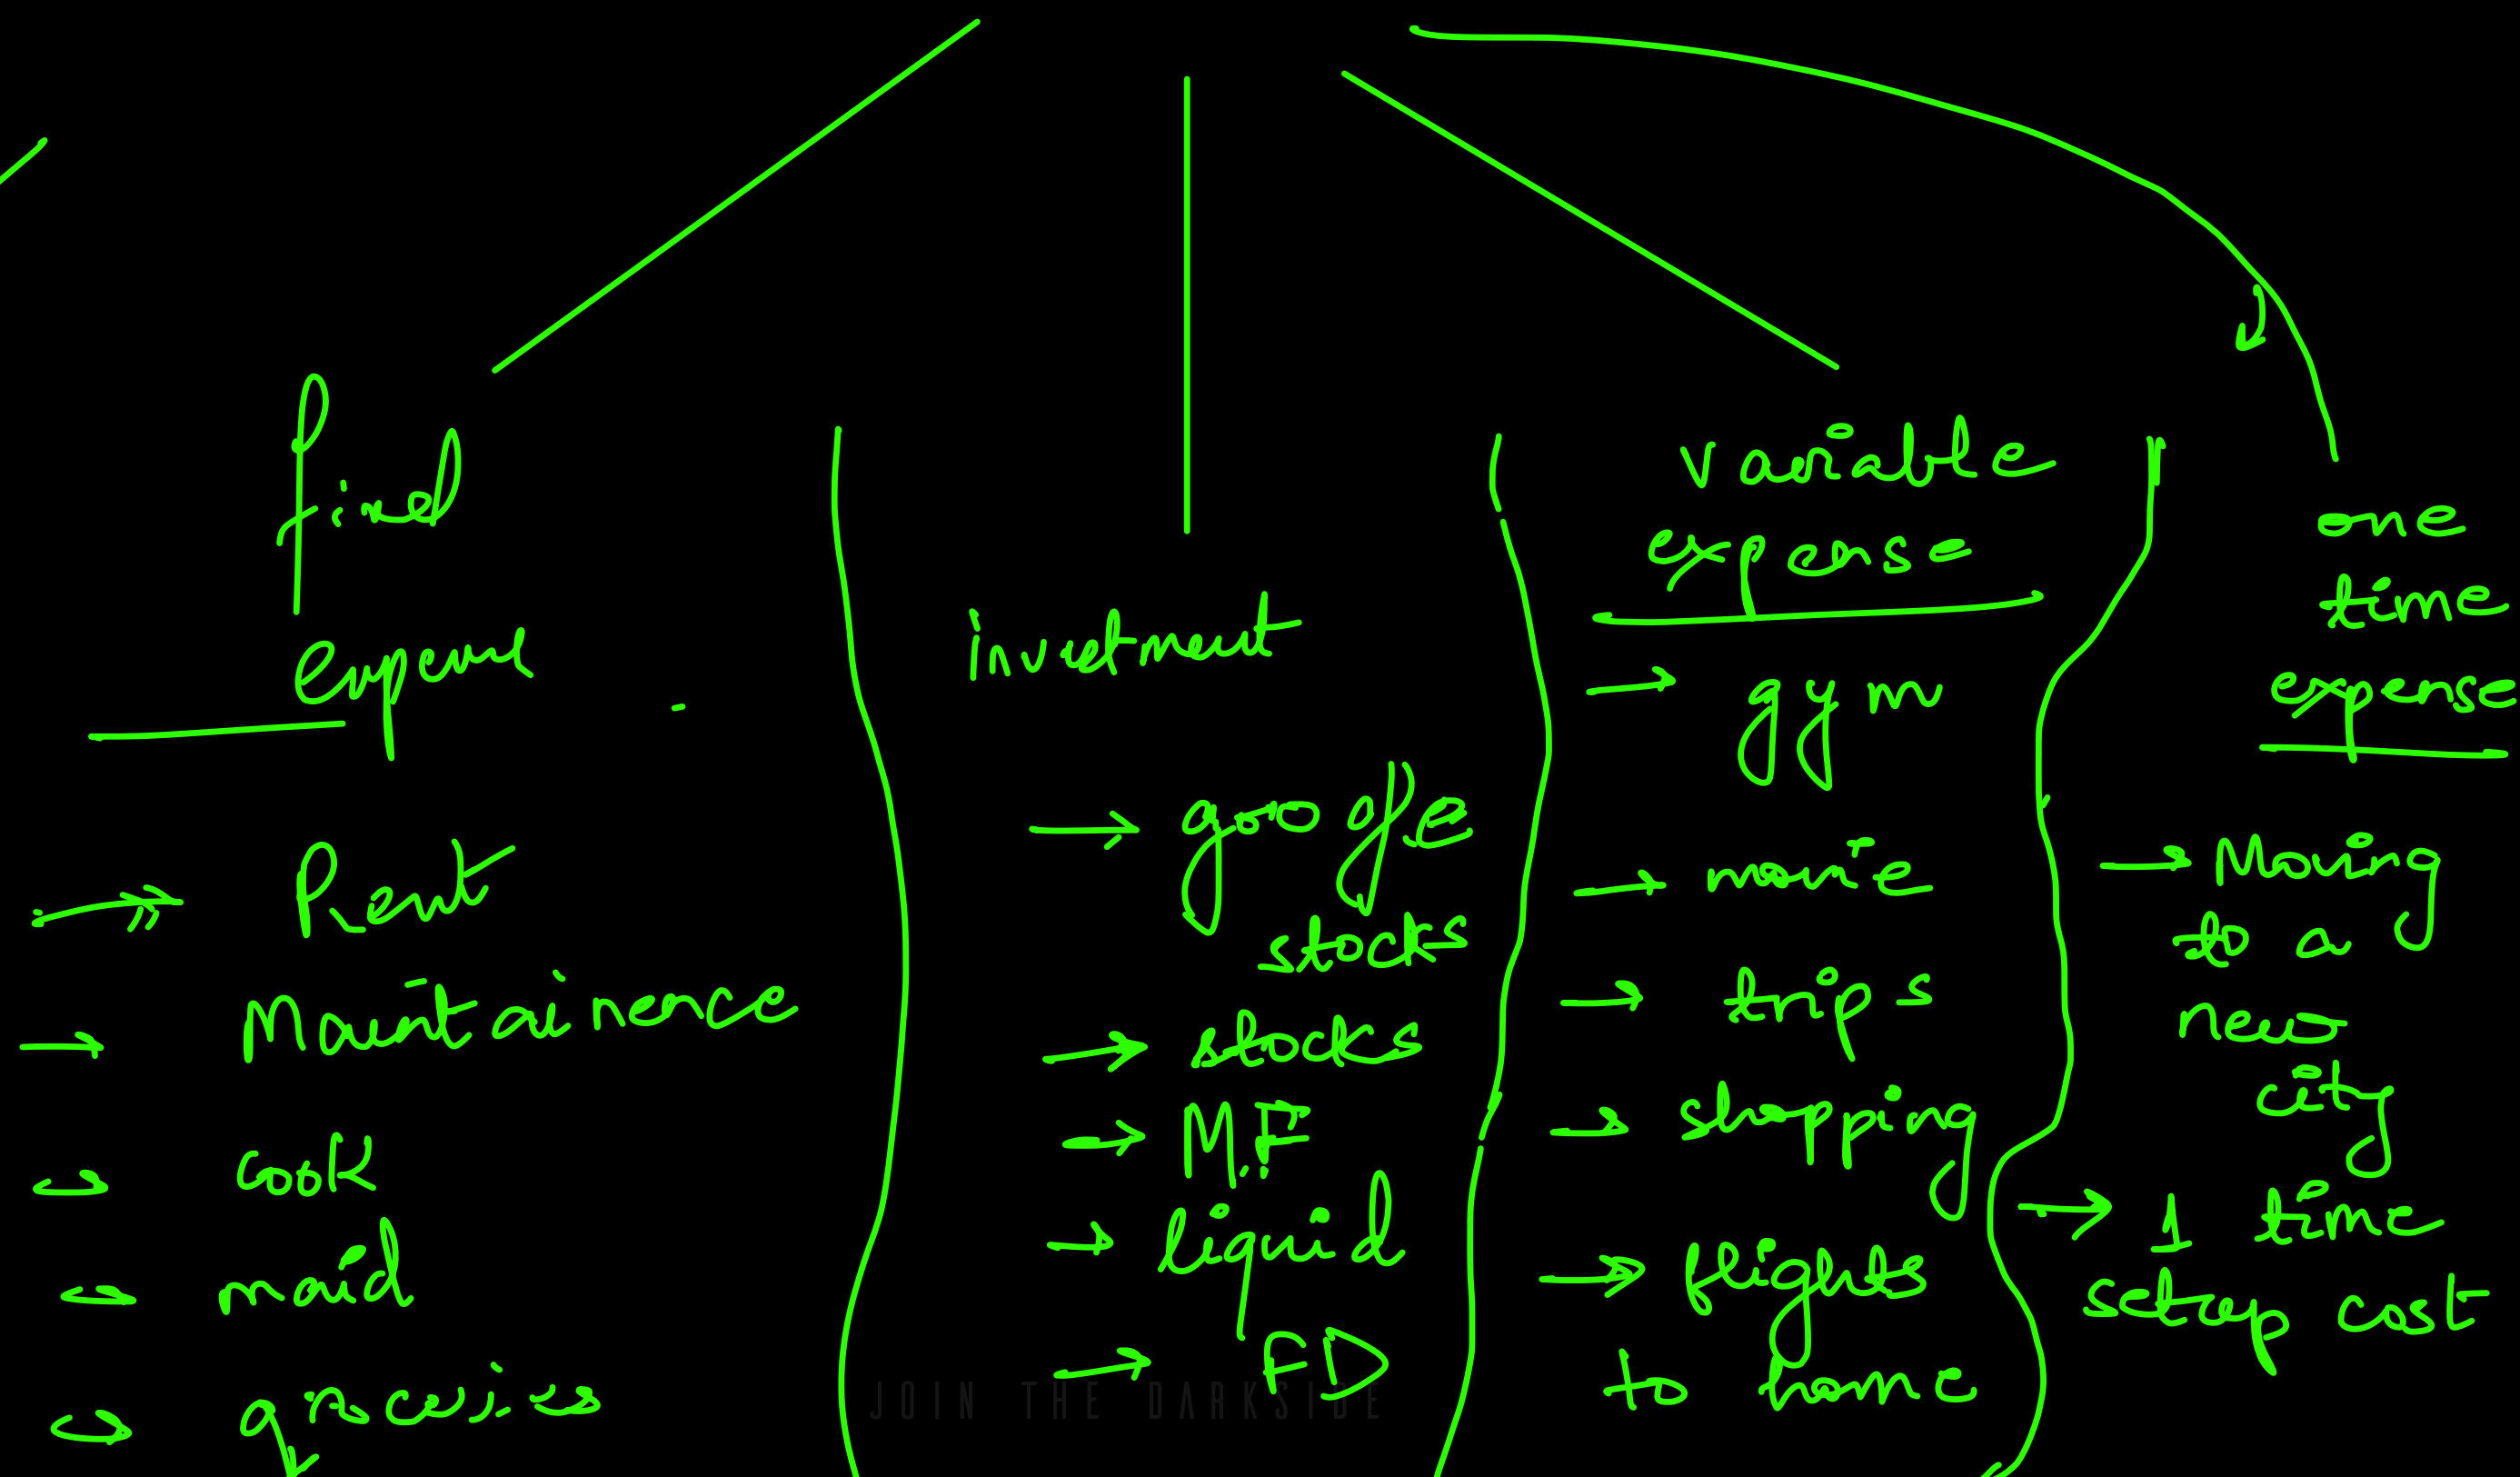 fixed
expense
→ Rent
→ Maintainence
→ cook
→ maid
→ groceries
investment
→ google
stocks
→ stocks
→ M.F.
→ liquid
→ FD
variable
expense
→ gym
→ movie
→ trips
→ shopping
→ flights
to home
one
time
expense
→ Moving
to a
new
city
→ 1 time
setup cost
JOIN THE DARKSIDE